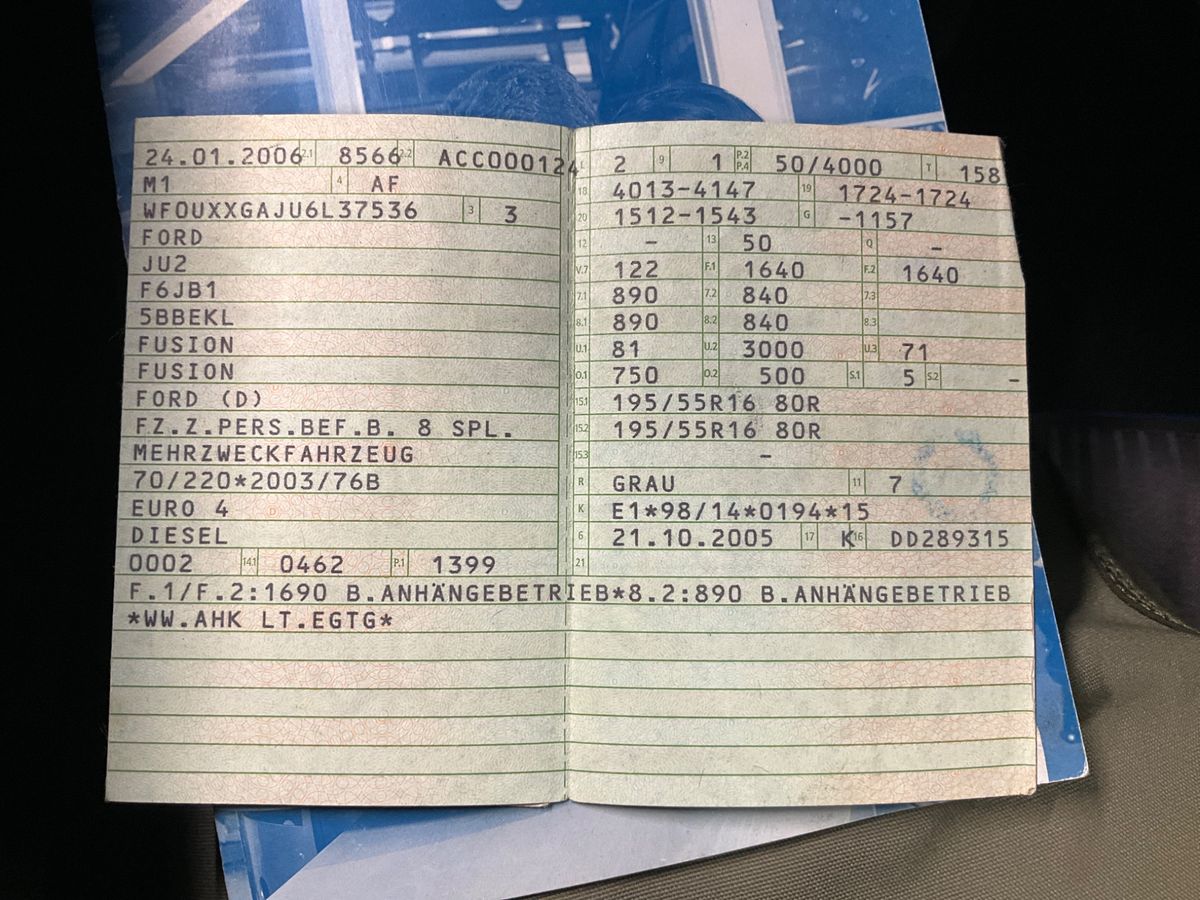 24.01.2006 2.1 8566 2.2 ACC000124
M1 4 AF
WF0UXXGAJU6L37536 3 3
FORD
JU2
F6JB1
5BBEKL
FUSION
FUSION
FORD (D)
F.Z.Z.PERS.BEF.B. 8 SPL.
MEHRZWECKFAHRZEUG
70/220*2003/76B
EURO 4
DIESEL
0002 14.1 0462 P.1 1399
L 2 9 1 P.2 P.4 50/4000 T 158
18 4013-4147 19 1724-1724
20 1512-1543 G -1157
12 - 13 50 Q -
V.7 122 F.1 1640 F.2 1640
7.1 890 7.2 840 7.3
8.1 890 8.2 840 8.3
U.1 81 U.2 3000 U.3 71
O.1 750 O.2 500 S.1 5 S.2 -
15.1 195/55R16 80R
15.2 195/55R16 80R
15.3 -
R GRAU 11 7
K E1*98/14*0194*15
6 21.10.2005 17 K 16 DD289315
21
F.1/F.2:1690 B.ANHÄNGEBETRIEB*8.2:890 B.ANHÄNGEBETRIEB
*WW.AHK LT.EGTG*